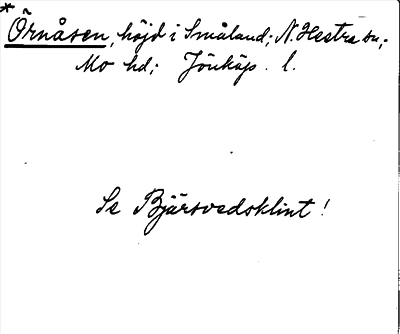 * Örnåsen, höjd i Småland; N. Hestra sn;
Mo hd; Jönköp. l.
Se Bjärsvedsklint!